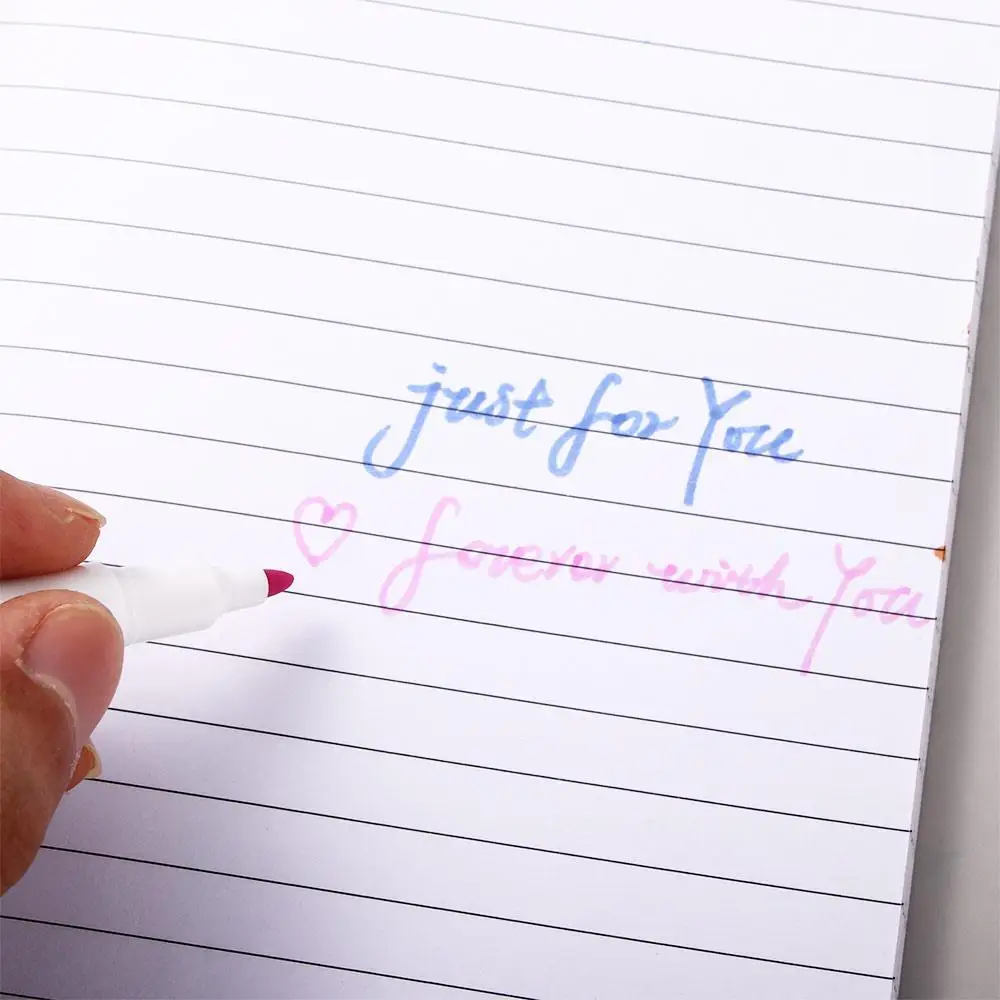 just for You
♡ forever with You